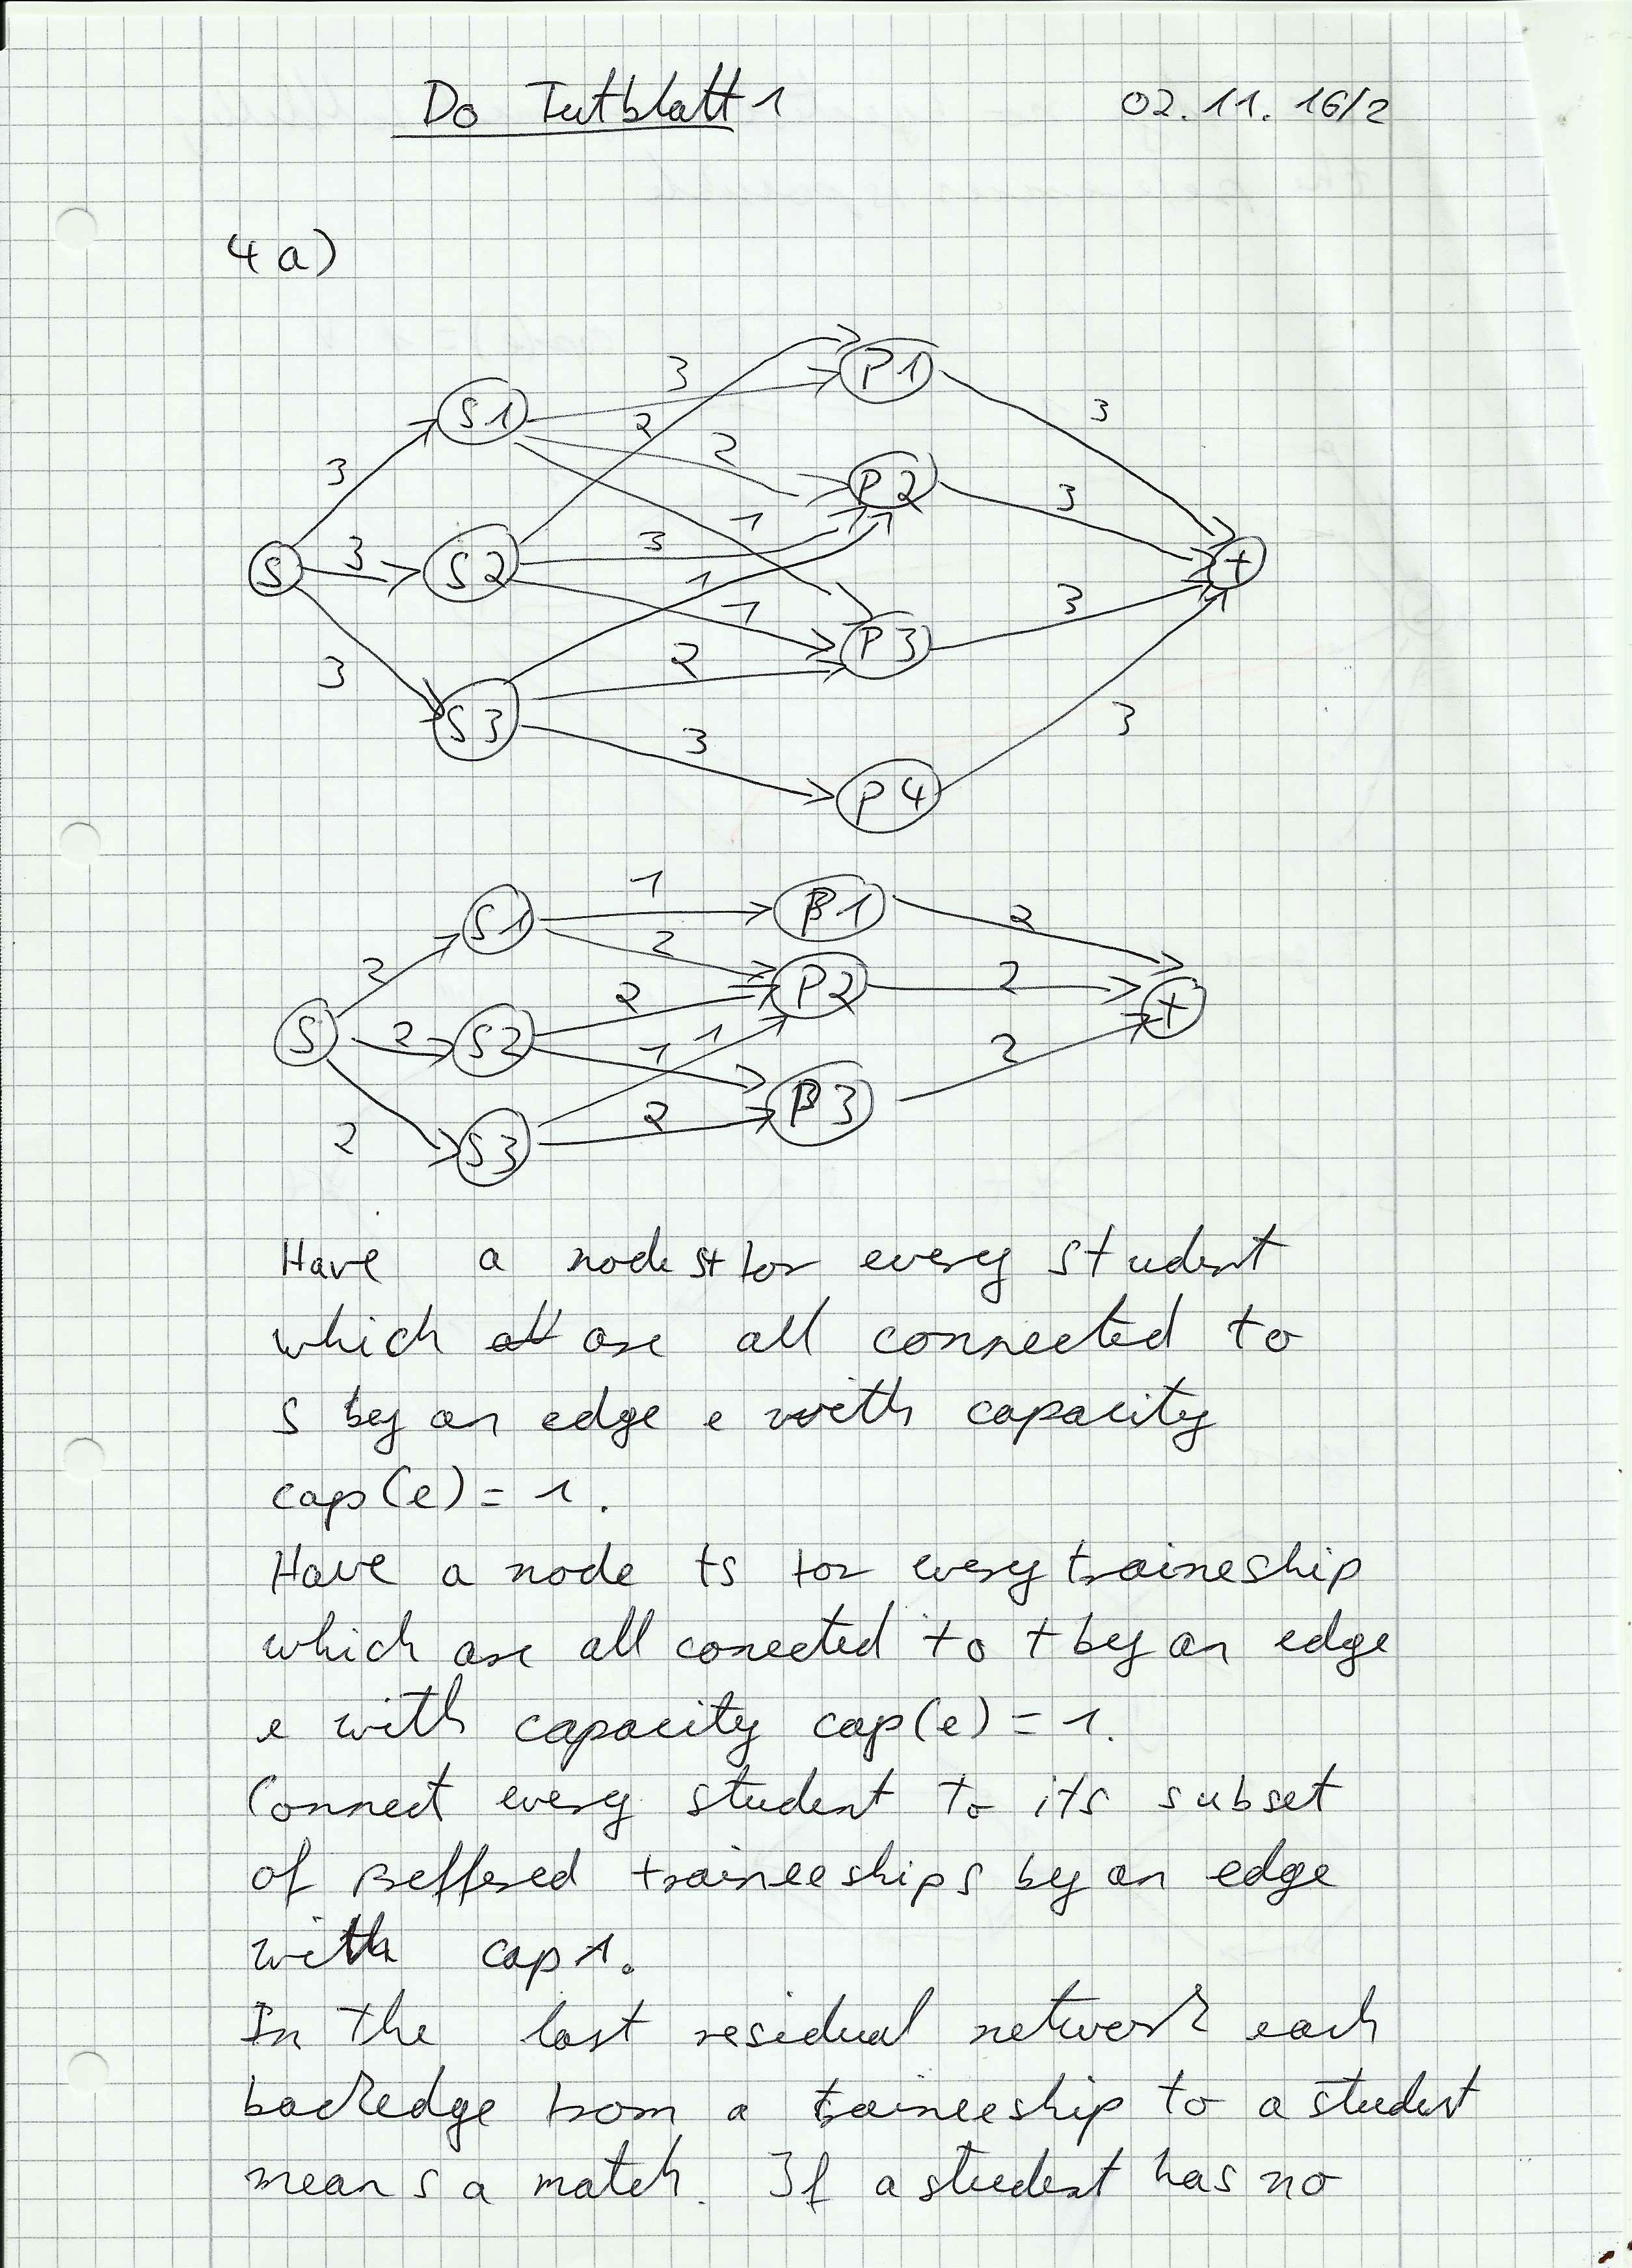 Do Tutblatt 1 02.11.16/2
4a)
S1 3 P1
3 2 2 3
P2 3
S 3 S2 3 1 t
1 1 P3 3
3 2
S3 3 3
P4
1
S1 P1 2
2 2 P2 2
S 2 S2 2 t
1 1 P3 2
2 S3 2
Have a node st for every student
which are all connected to
s by an edge e with capacity
cap(e) = 1.
Have a node ts for every traineship
which are all conected to t by an edge
e with capacity cap(e) = 1.
Connect every student to its subset
of preffered traineeships by an edge
with cap 1.
In the last residual network each
backedge from a traineeship to a student
means a match. If a student has no